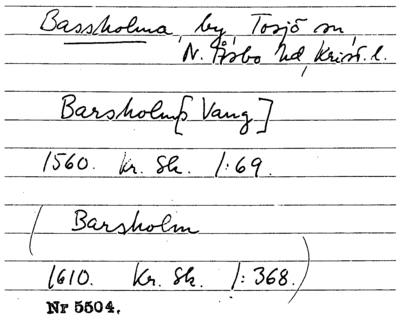 Bassholma, by, Tosjö sn,
N. Åsbo hd, Krist. l.
Barsholms [Vang]
1560. Kr. Sk. 1:69.
(Barsholm
1610. Kr. Sk. 1:368.)
Nr 5504.